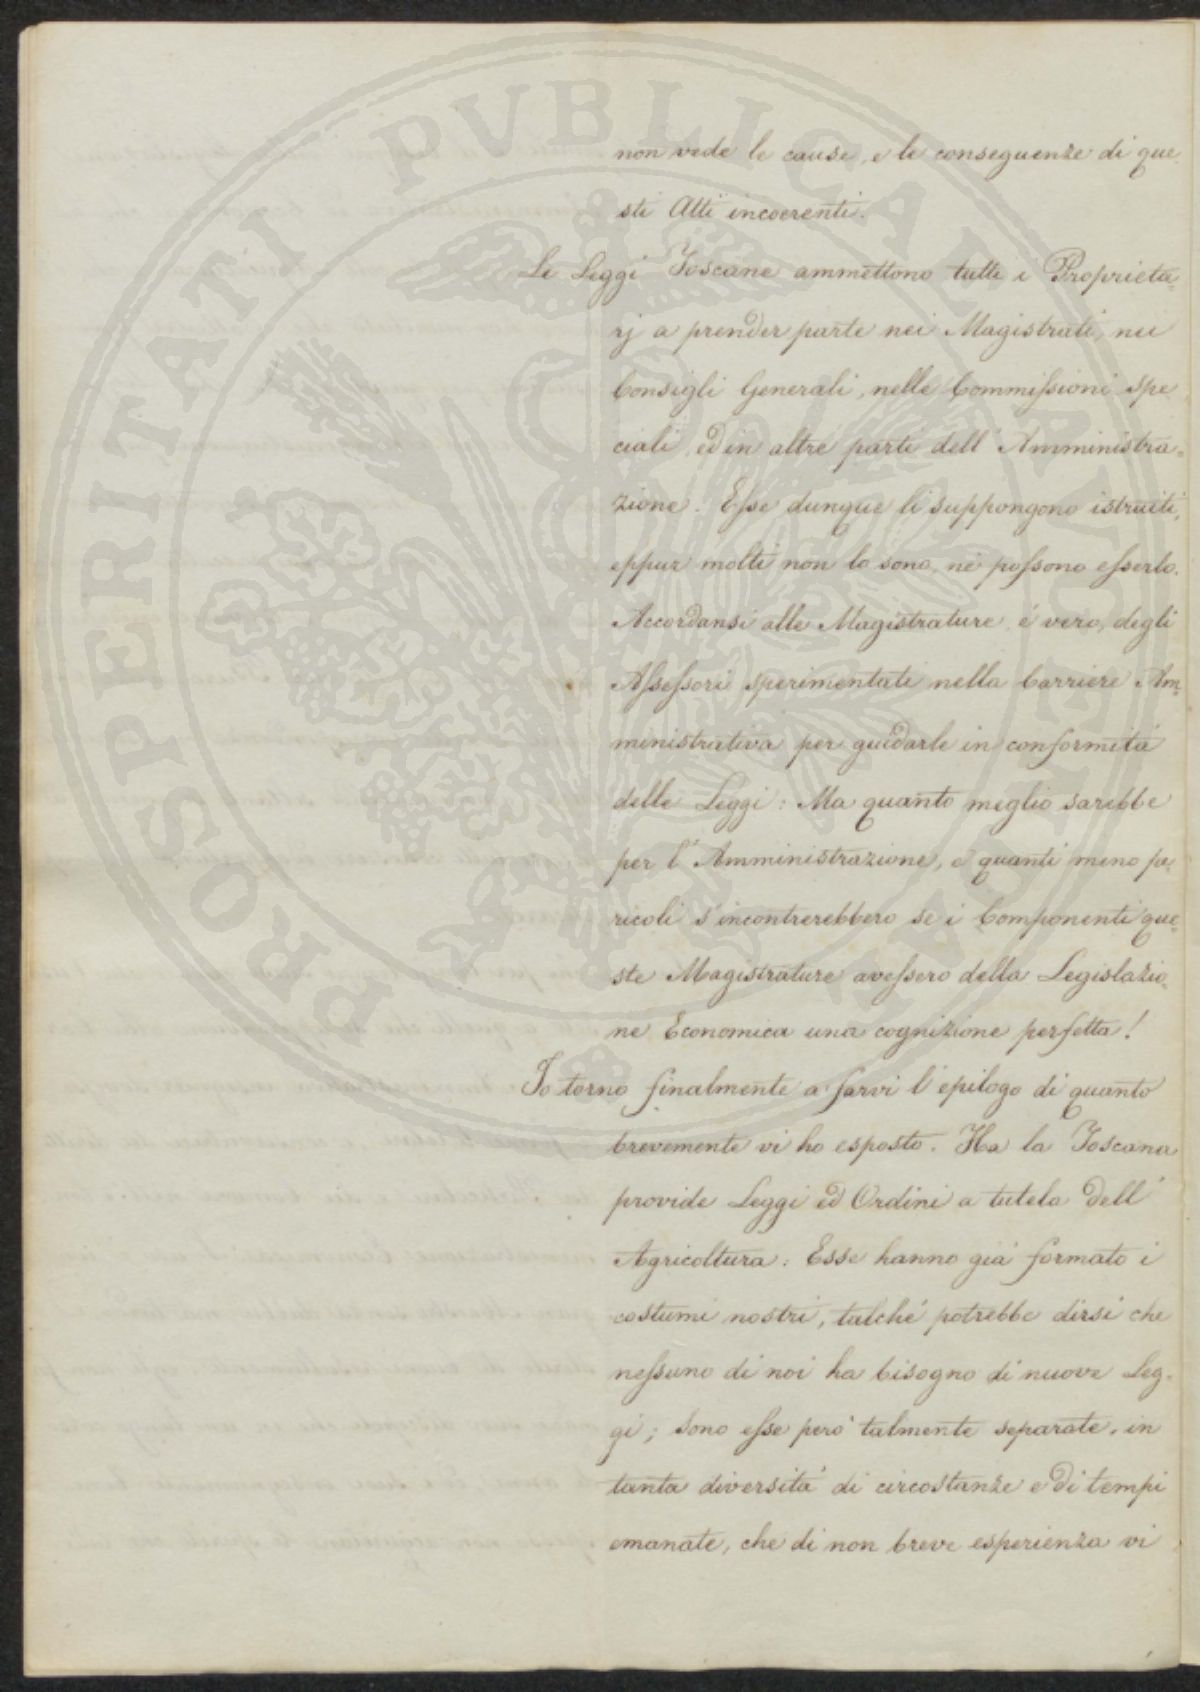 non vede le cause, e le conseguenze di que-
sti Atti incoerenti.
Le Leggi Toscane ammettono tutti i Proprieta-
rj a prender parte nei Magistrati, nei
Consigli Generali, nelle Commissioni spe
ciali, ed in altre parti dell'Amministra-
zione. Esse dunque li suppongono istruiti,
eppur molti non lo sono, né possono esserlo.
Accordansi alle Magistrature, é vero, degli
Assessori sperimentati nella Carriere Am-
ministrativa per guidarle in conformitá
delle Leggi: Ma quanto meglio sarebbe
per l'Amministrazione, e quanti meno pe-
ricoli s'incontrerebbero se i Componenti que-
ste Magistrature avessero della Legislazio-
ne Economica una cognizione perfetta!
Io torno finalmente a farvi l'epilogo di quanto
brevemente vi ho esposto. Ha la Toscana
provide Leggi ed Ordini a tutela dell'
Agricoltura: Esse hanno giá formato i
costumi nostri, talché potrebbe dirsi che
nessuno di noi ha bisogno di nuove Leg-
gi; sono esse peró talmente separate, in
tanta diversitá di circostanze e di tempi
emanate, che di non breve esperienza vi
PROSPERITATI PVBLICAE AVGENDAE